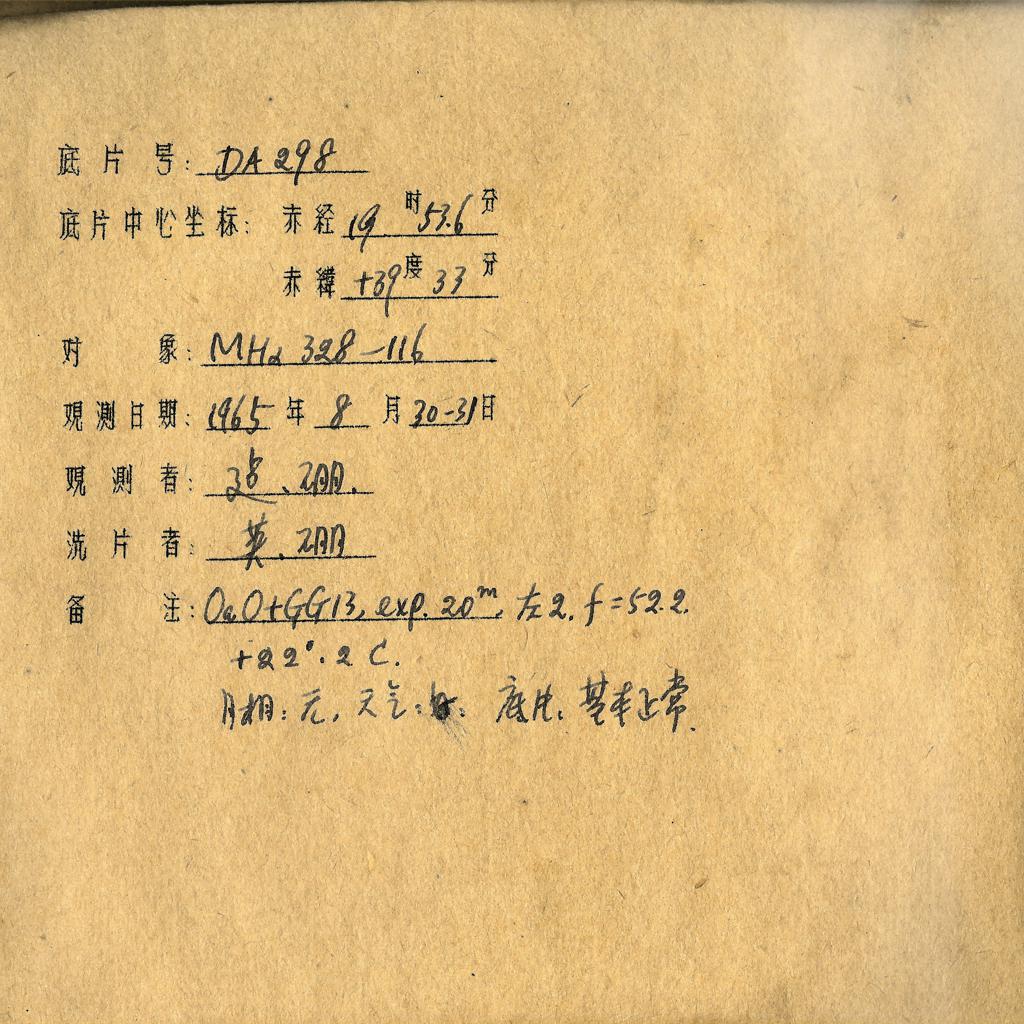 底片号: DA 298
底片中心坐标: 赤经 19 时 53.6 分
赤緯 +39 度 33 分
对象: MHα 328-116
观测日期: 1965 年 8 月 30-31 日
观测者: 、硼.
洗片者: 英、硼
备注: OaO+GG13, exp. 20ᵐ, 左2. f=52.2.
+22°.2 C.
月相: 元. 天气: 底片: 基本正常.